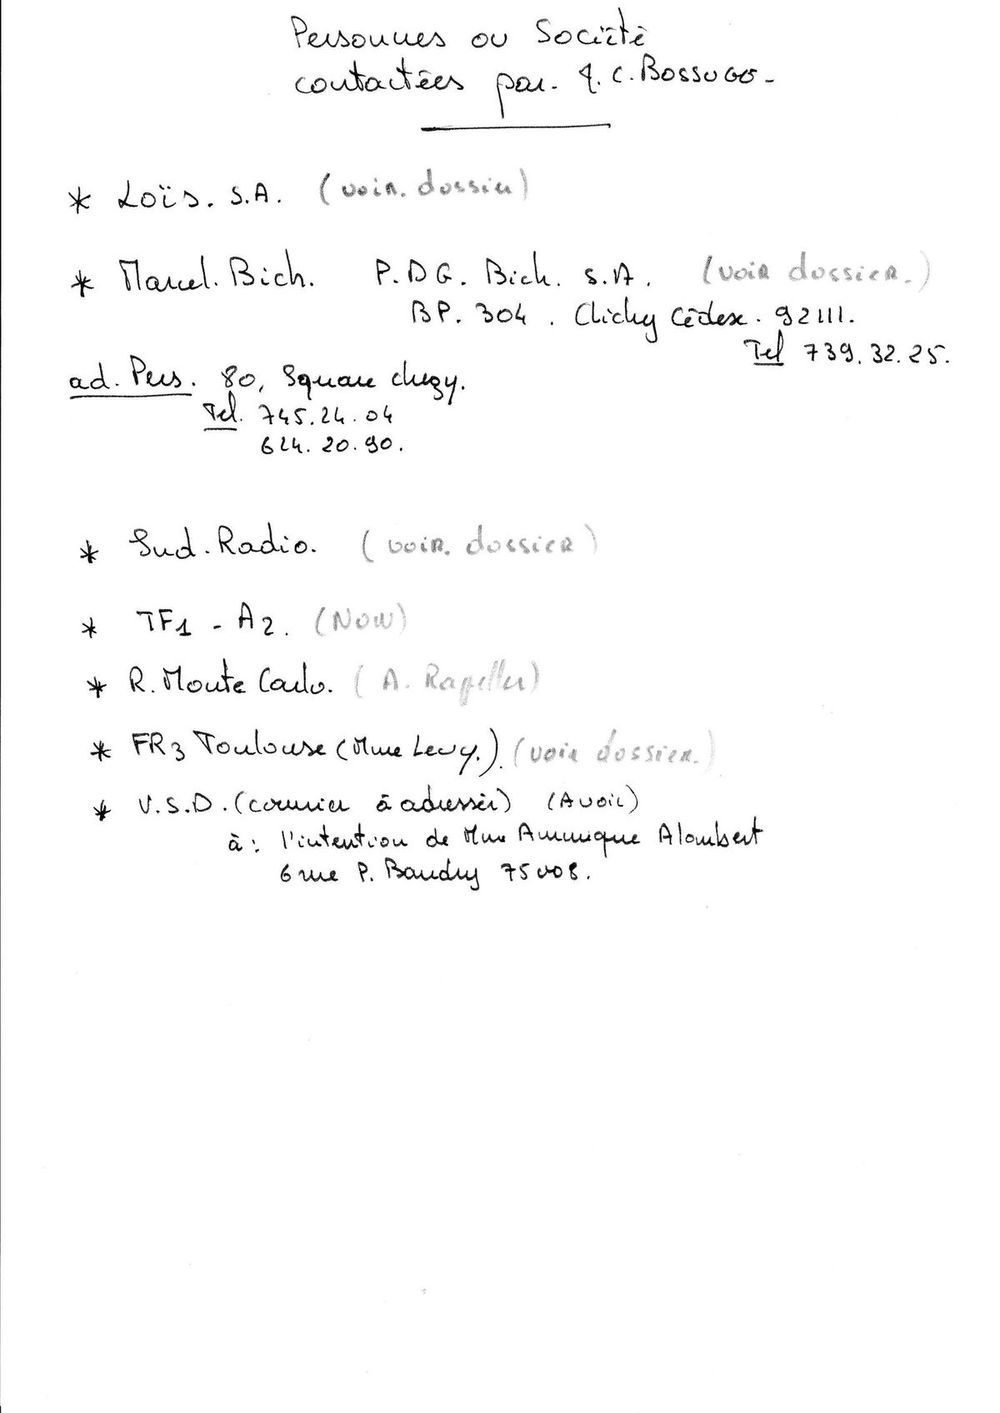 Personnes ou Société
contactées par. J. C. BOSSUGO -
* Loïs. S.A. (voir. dossier)
* Marcel. Bich. P.D G. Bich. S.A. (voir dossier.)
BP. 304 . Clichy Cédex. 92111.
Tel 739.32.25.
ad. Pers. 80, Square chezy.
Tel. 745.24.04
624.20.90.
* Sud. Radio. (voir. dossier)
* TF1 - A2. (Now)
* R. Monte Carlo. (A. Rapeller)
* FR3 Toulouse (Mme Levy.). (voir dossier.)
* V.S.D. (courrier à adresser) (Avoir)
à: l'intention de Mme Alombert
6 rue P. Baudry 75008.